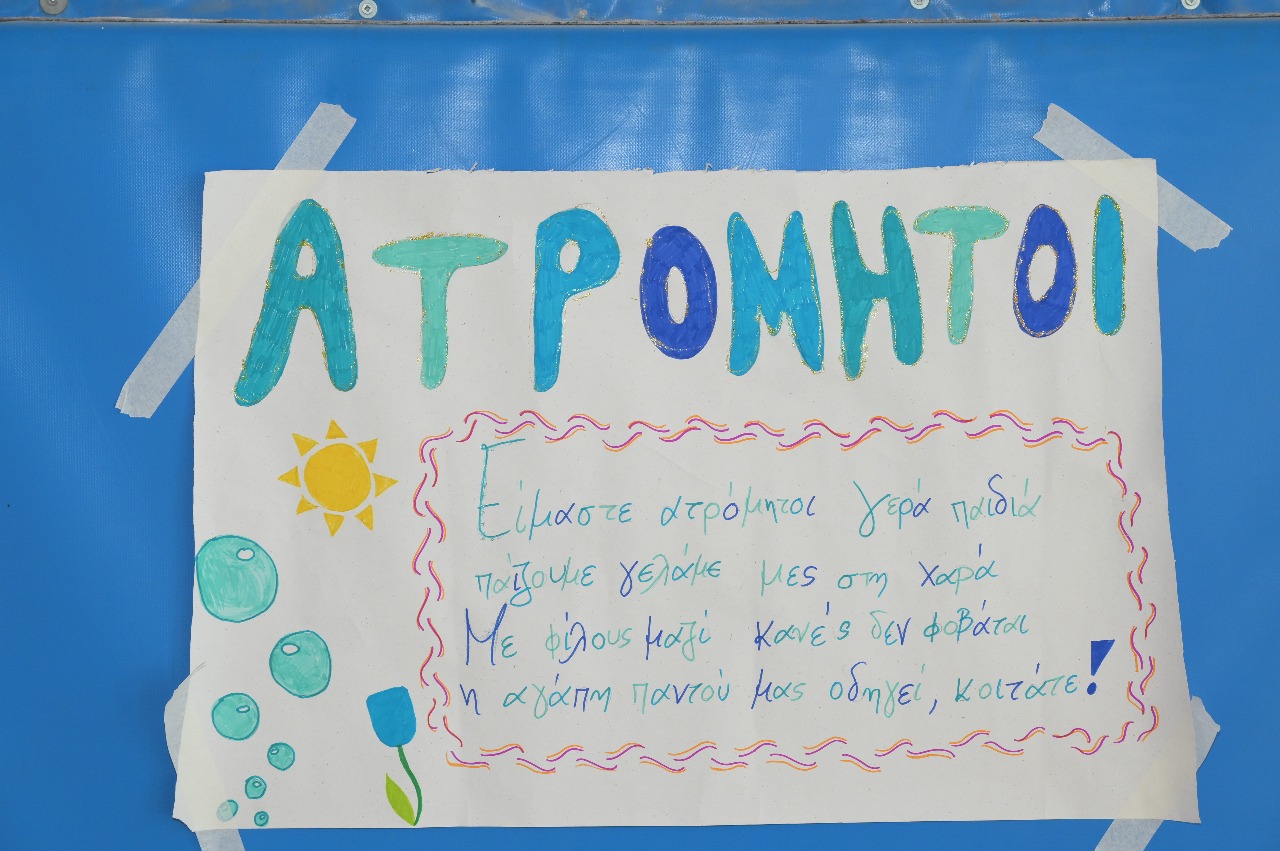 ΑΤΡΟΜΗΤΟΙ
Είμαστε ατρόμητοι γερά παιδιά
παίζουμε γελάμε μες στη χαρά
Με φίλους μαζί κανείς δεν φοβάται
η αγάπη παντού μας οδηγεί, κοιτάτε!